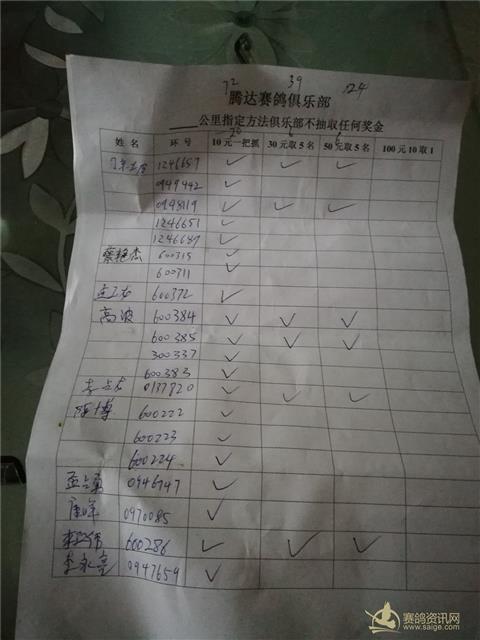 72 39 124
腾达赛鸽俱乐部
公里指定方法俱乐部不抽取任何奖金
20 6 6
姓名 环号 10元一把抓 30元取5名 50元取5名 100元10取1
1246657 ✓ ✓ ✓
0949942 ✓
0198119 ✓ ✓ ✓
1246651 ✓
1246687 ✓
蔡艳杰 600315 ✓
600311 ✓
600372 ✓
高波 600384 ✓ ✓ ✓
600385 ✓ ✓ ✓
300337 ✓
600383 ✓
0137820 ✓ ✓ ✓
600222 ✓
600223 ✓
600224 ✓
0946747 ✓
0970085 ✓
600286 ✓ ✓ ✓
李永亮 0947659 ✓
赛鸽资讯网
www.saige.com